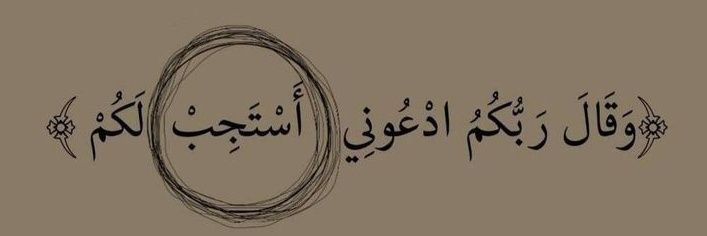 ﴿وَقَالَ رَبُّكُمُ ادْعُونِي أَسْتَجِبْ لَكُمْ﴾